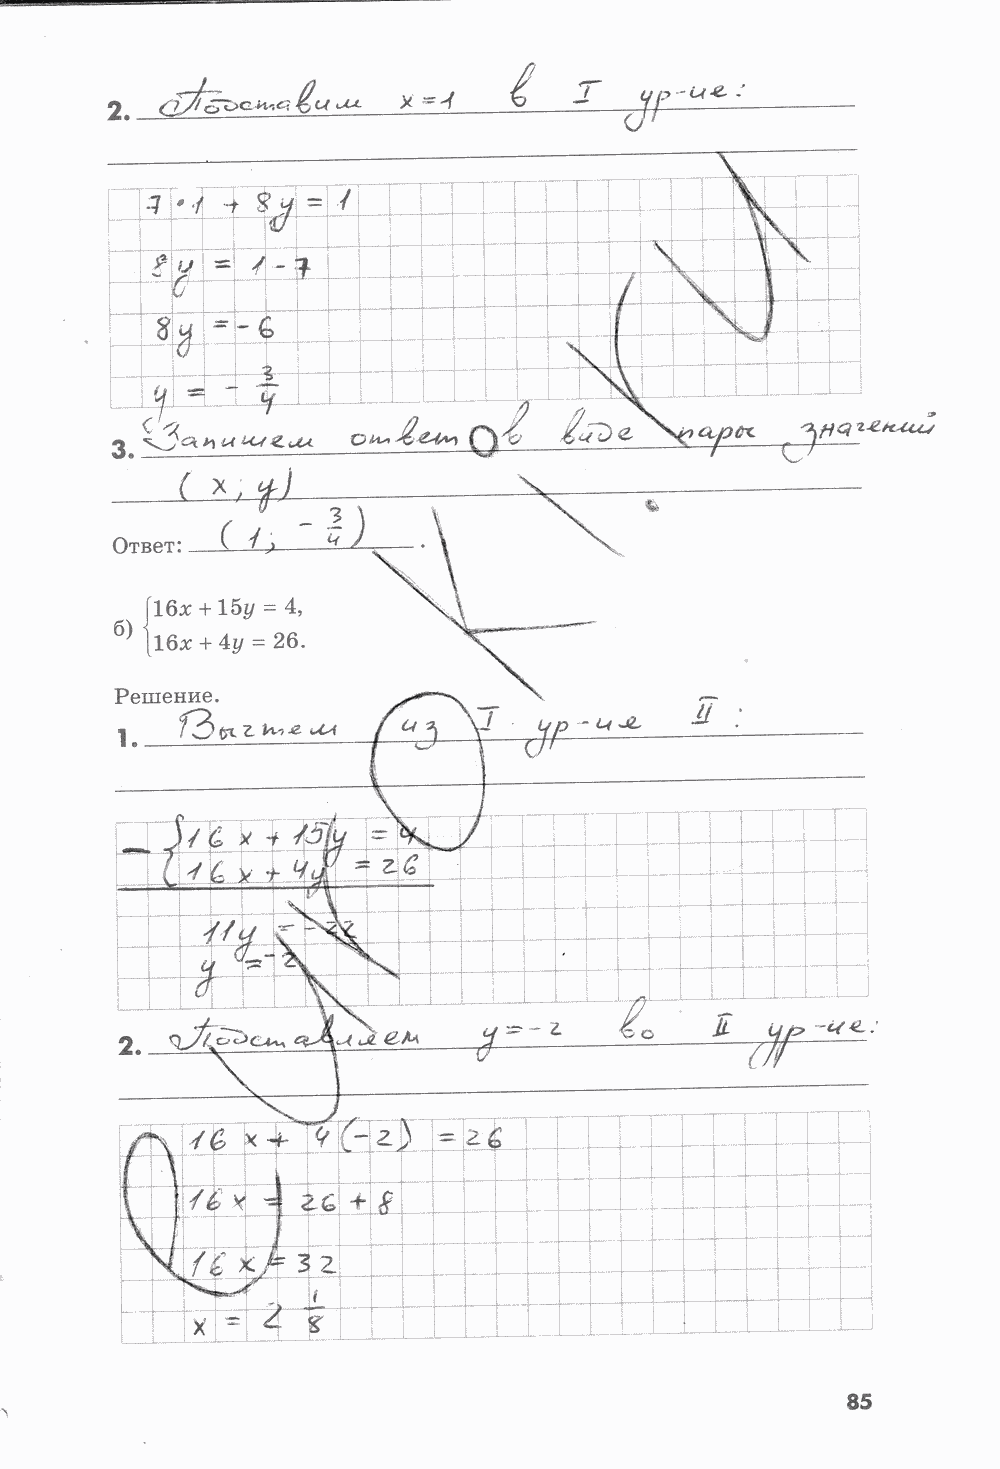 2. Подставим x=1 в I ур-ие:
7·1 + 8y = 1
8y = 1-7
8y = -6
y = - 3/4
3. Запишем ответ в виде пары значений
(x; y)
Ответ: (1; - 3/4).
б) {16x + 15y = 4,
16x + 4y = 26.
Решение.
1. Вычтем из I ур-ия II :
- {16x + 15y = 4
{16x + 4y = 26
11y = -22
y = -2
2. Подставляем y=-2 во II ур-ие:
16x + 4(-2) = 26
16x = 26 + 8
16x = 32
x = 2 1/8
85